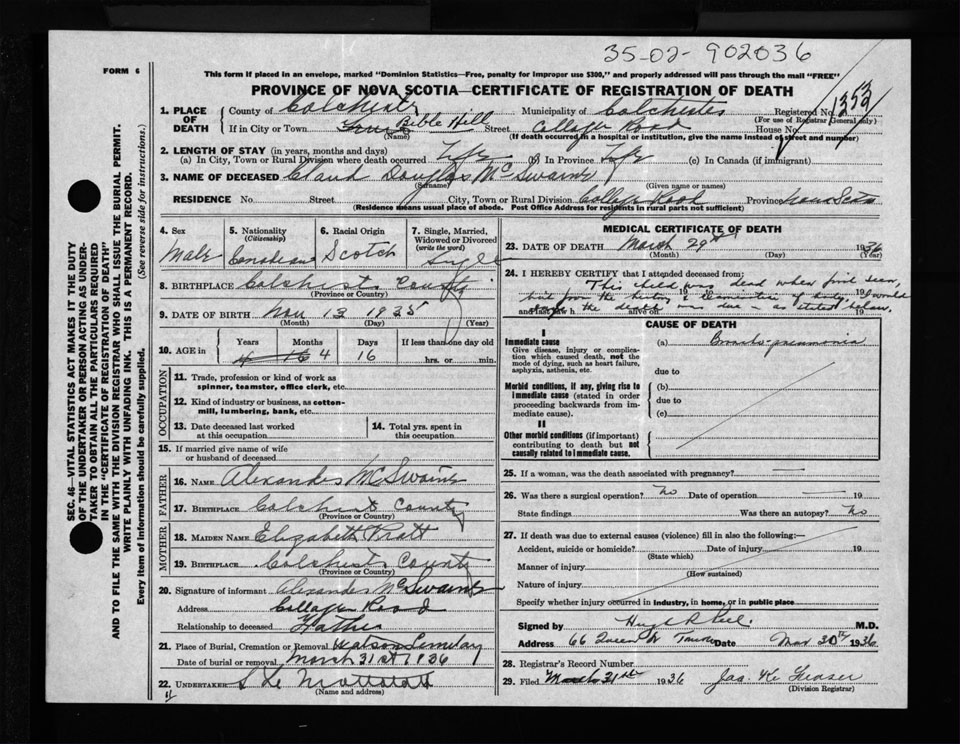 35-02-902036
FORM 6
This form if placed in an envelope, marked "Dominion Statistics—Free, penalty for improper use $300," and properly addressed will pass through the mail "FREE"
PROVINCE OF NOVA SCOTIA—CERTIFICATE OF REGISTRATION OF DEATH
1. PLACE OF DEATH
County of Colchester Municipality of Colchester Registered No.
(For use of Registrar General only)
If in City or Town Bible Hill Street College Road House No.
(Name) (If death occurred in a hospital or institution, give the name instead of street and number)
2. LENGTH OF STAY (in years, months and days)
(a) In City, Town or Rural Division where death occurred Life (b) In Province Life (c) In Canada (if immigrant)
3. NAME OF DECEASED Claud Douglas McSwaine
(Surname) (Given name or names)
RESIDENCE No. Street City, Town or Rural Division College Road Province Nova Scotia
(Residence means usual place of abode. Post Office Address for residents in rural parts not sufficient)
4. Sex Male
5. Nationality (Citizenship) Canadian
6. Racial Origin Scotch
7. Single, Married, Widowed or Divorced (write the word) Single
8. BIRTHPLACE Colchester County
(Province or Country)
9. DATE OF BIRTH Nov 13 1935
(Month) (Day) (Year)
10. AGE in Years Months Days If less than one day old
4 16 4 16 hrs. or min.
OCCUPATION
11. Trade, profession or kind of work as spinner, teamster, office clerk, etc.
12. Kind of industry or business, as cotton-mill, lumbering, bank, etc.
13. Date deceased last worked at this occupation
14. Total yrs. spent in this occupation
15. If married give name of wife or husband of deceased
FATHER
16. NAME Alexander McSwaine
17. BIRTHPLACE Colchester County
(Province or Country)
MOTHER
18. MAIDEN NAME Elizabeth Pratt
19. BIRTHPLACE Colchester County
(Province or Country)
20. Signature of informant Alexander McSwaine
Address College Road
Relationship to deceased Father
21. Place of Burial, Cremation or Removal Watson Cemetery
Date of burial or removal March 31st 1936
22. UNDERTAKER
(Name and address)
MEDICAL CERTIFICATE OF DEATH
23. DATE OF DEATH March 29th 1936
(Month) (Day) (Year)
24. I HEREBY CERTIFY that I attended deceased from:
This child was dead when first seen,
but from the history & examination of body I would
say the death was due — as stated below.
and last saw h alive on 19
CAUSE OF DEATH
I
Immediate cause
Give disease, injury or complication which caused death, not the mode of dying, such as heart failure, asphyxia, asthenia, etc.
(a) Broncho-pneumonia
due to
Morbid conditions, if any, giving rise to immediate cause (stated in order proceeding backwards from immediate cause).
(b)
due to
(c)
II
Other morbid conditions (if important) contributing to death but not causally related to immediate cause.
25. If a woman, was the death associated with pregnancy?
26. Was there a surgical operation? No Date of operation — 19
State findings Was there an autopsy? No
27. If death was due to external causes (violence) fill in also the following:—
Accident, suicide or homicide? Date of injury 19
(State which)
Manner of injury
(How sustained)
Nature of injury
Specify whether injury occurred in industry, in home, or in public place
Signed by M.D.
Address 66 Queen St Truro Date Mar 30th 1936
28. Registrar's Record Number
29. Filed March 31st 1936 Jas. K. Fraser
(Division Registrar)
SEC. 46—VITAL STATISTICS ACT MAKES IT THE DUTY
OF THE UNDERTAKER OR PERSON ACTING AS UNDER-
TAKER TO OBTAIN ALL THE PARTICULARS REQUIRED
IN THE "CERTIFICATE OF REGISTRATION OF DEATH"
AND TO FILE THE SAME WITH THE DIVISION REGISTRAR WHO SHALL ISSUE THE BURIAL PERMIT.
WRITE PLAINLY WITH UNFADING INK. THIS IS A PERMANENT RECORD.
Every item of information should be carefully supplied. (See reverse side for instructions.)